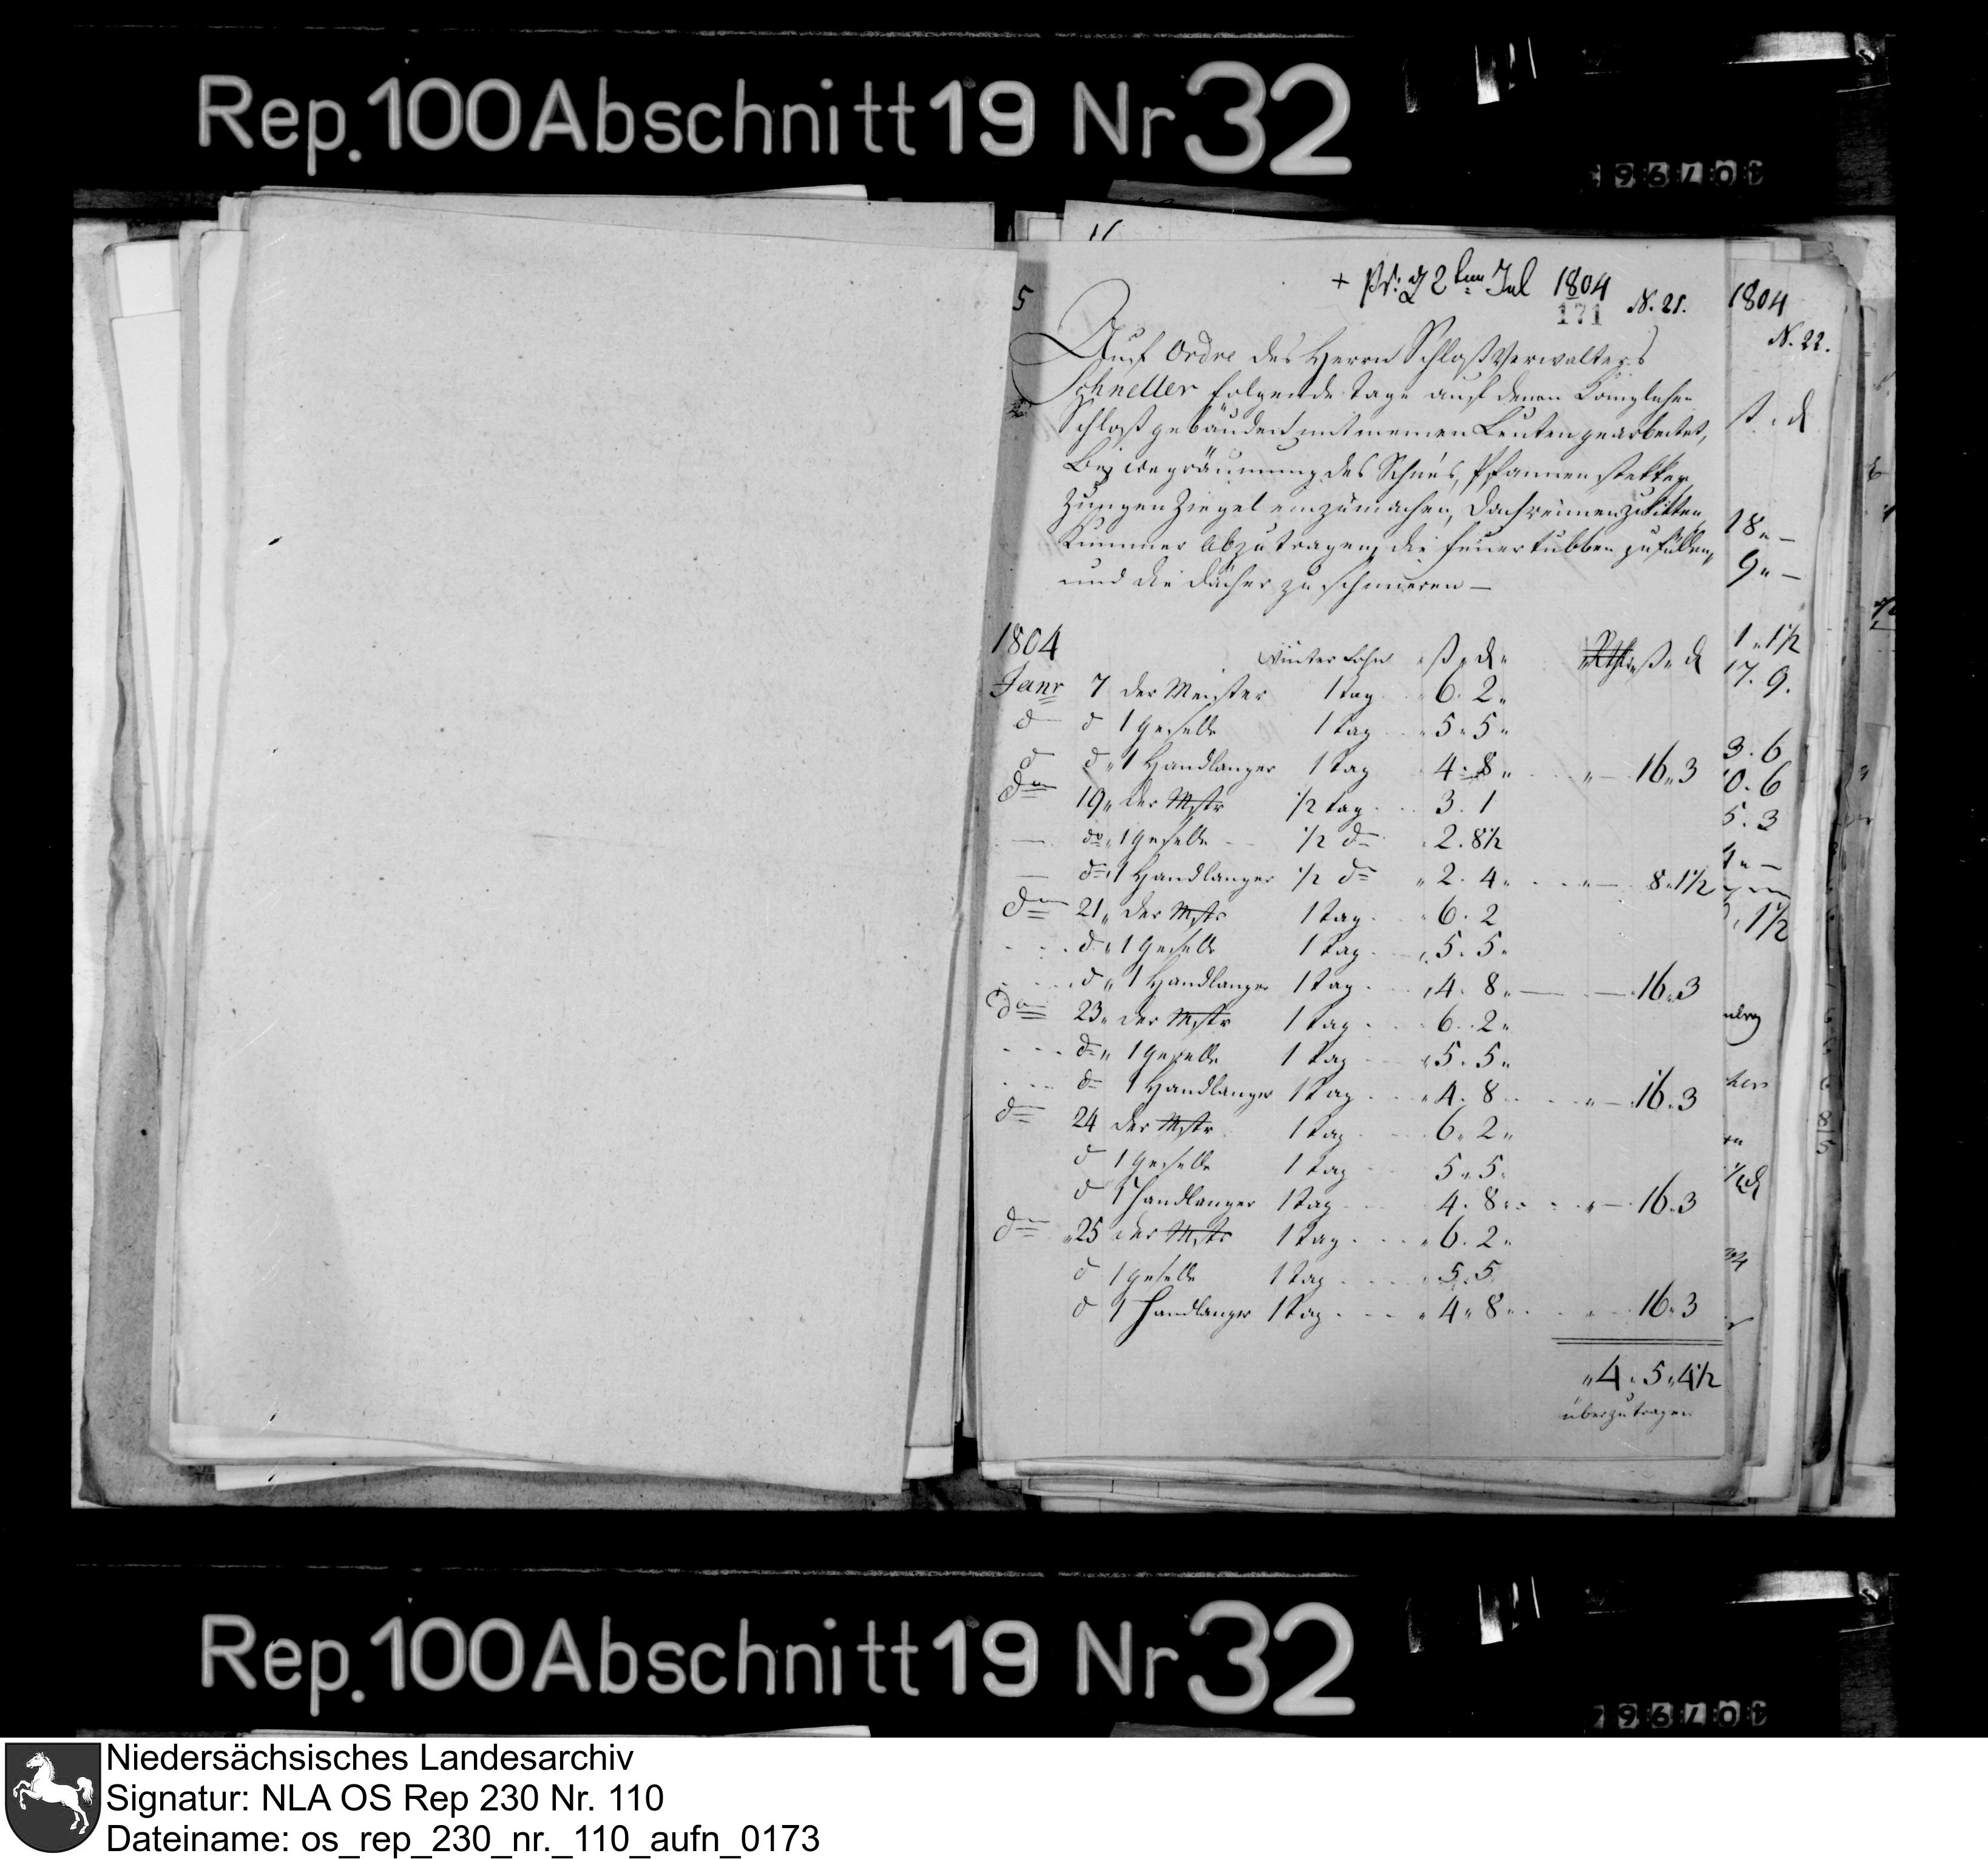 Rep. 100 Abschnitt 19 Nr 32
5
+ Pr: d 2ten Jul 1804
171
N. 21.
Auf Ordre des Herrn SchloßVerwalters
Schneller folgende tage auf denen Königlichen
Schloßgebäuden mit meinen Leuten gearbeitet,
Bey wegräumung des Schnees, Pfannen stekken,
Zungen Ziegel einzumachen, Dachreinnen zu kitten,
Kummer abzutragen, die feuertubben zu füllen,
und die Dächer zu schmieren —
1804
Winter Lohn ß d ß d
Janr 7 der Meister 1 tag 6. 2
d d 1 geselle 1 tag 5. 5
d d 1 Handlanger 1 tag 4. 8 16. 3
do 19 der Mstr 1/2 tag 3. 1
— do 1 geselle 1/2 do 2. 8 1/2
— do 1 Handlanger 1/2 do 2. 4 8. 1 1/2
do 21 der Mstr 1 tag 6. 2
d 1 geselle 1 tag 5. 5
d 1 Handlanger 1 tag 4. 8 — 16. 3
do 23 der Mstr 1 tag 6. 2
do 1 geselle 1 tag 5. 5
do 1 Handlanger 1 tag 4. 8 16. 3
do 24 der Mstr 1 tag 6. 2
d 1 geselle 1 tag 5. 5
d 1 Handlanger 1 tag 4. 8 16. 3
do 25 der Mstr 1 tag 6. 2
d 1 geselle 1 tag 5. 5
d 1 Handlanger 1 tag 4. 8 16. 3
4. 5. 4 1/2
überzutragen
1804
N. 22.
ß d
18 —
9 —
1. 1 1/2
17. 9.
3. 6
0. 6
5. 3
1 1/2
Rep. 100 Abschnitt 19 Nr 32
Niedersächsisches Landesarchiv
Signatur: NLA OS Rep 230 Nr. 110
Dateiname: os_rep_230_nr._110_aufn_0173